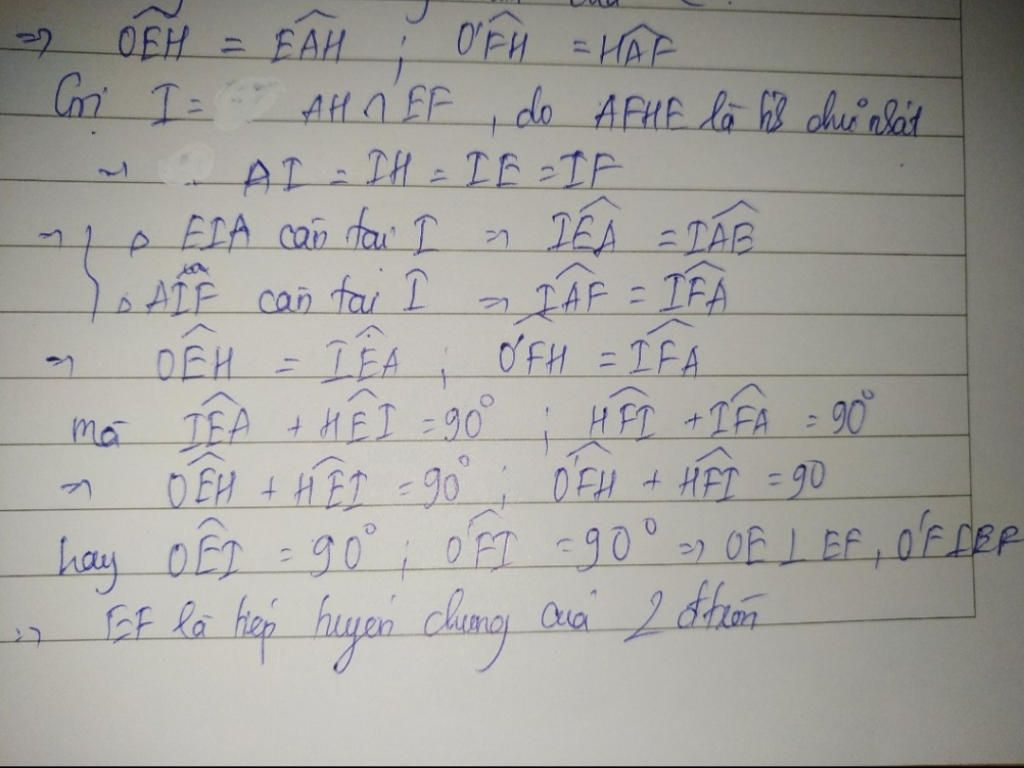 => OÊH = EÂH ; O'F̂H = HÂF
Gọi I = AH ∩ EF , do AFHE là hình chữ nhật
=> AI = IH = IE = IF
=> { △ EIA cân tại I => IÊA = IÂB
△ AIF cân tại I => IÂF = IF̂A
=> OÊH = IÊA ; O'F̂H = IF̂A
mà IÊA + HÊI = 90° ; HF̂I + IF̂A = 90°
=> OÊH + HÊI = 90° ; O'F̂H + HF̂I = 90
hay OÊI = 90° ; O'F̂I = 90° => OE ⊥ EF , O'F ⊥ EF
=> EF là tiếp tuyến chung của 2 đtròn